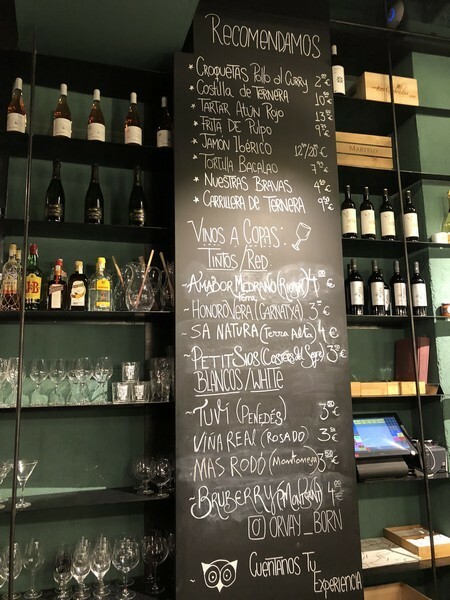 RECOMENDAMOS
* CROQUETAS Pollo al CURRY 2⁰⁰€
* Costilla de TERNERA 10⁹⁰€
* TARTAR ATÚN ROJO 13⁵⁰€
* FRITA DE PULPO 9⁵⁰€
* JAMÓN IBÉRICO 12€/20€
* TORTILLA BACALAO 7€
* NUESTRAS BRAVAS 4⁹⁰€
* CARRILLERA DE TERNERA 9⁵⁰€
VINOS A COPAS:
TINTOS/RED:
~AMADOR MEDRANO (RIOJA) 4⁰⁰€
-HONORO VERA (GARNATXA) 3⁵⁰€
SA NATURA (Terra Alta) 4€
~PETIT SIOS (Costers del Segre) 3⁵⁰€
BLANCOS/WHITE
~TUVI (PENEDÉS) 3⁸⁰€
VIÑA REAL (ROSADO) 3⁵⁰€
MAS RODÓ 3⁵⁰€
~BRUBERRY (Montsant) 4⁰⁰€
ORVAY_BORN
~ CUENTANOS TU
EXPERIENCIA
MARTELO
J&B